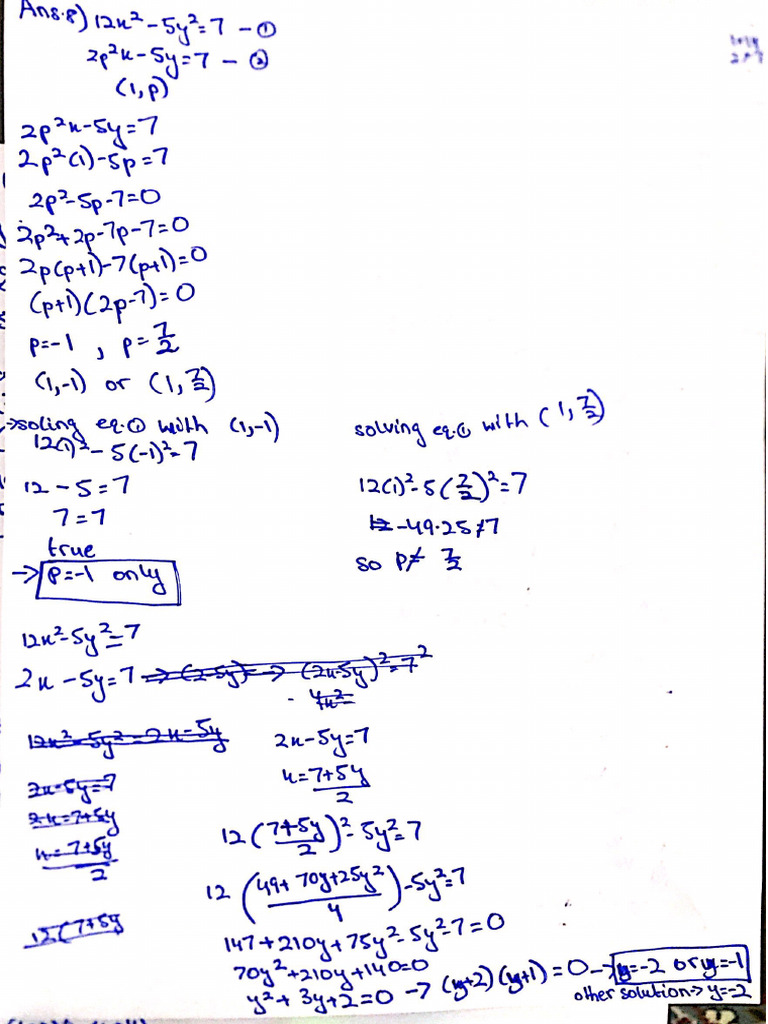 Ans.8) 12x² - 5y² = 7 - ①
2p²x - 5y = 7 - ②
(1, p)
2p²x - 5y = 7
2p²(1) - 5p = 7
2p² - 5p - 7 = 0
2p² + 2p - 7p - 7 = 0
2p(p+1) - 7(p+1) = 0
(p+1)(2p-7) = 0
p = -1 , p = 7/2
(1,-1) or (1, 7/2)
→ soling eq.① with (1,-1)
12(1)² - 5(-1)² = 7
12 - 5 = 7
7 = 7
true
→ p = -1 only
solving eq.① with (1, 7/2)
12(1)² - 5(7/2)² = 7
-49.25 ≠ 7
so p ≠ 7/2
12x² - 5y² = 7
2x - 5y = 7 → (2-5y) → (2x-5y)² = 7²
4x² =
12x² - 5y² - 2x = 5y
2x - 5y = 7
2x = 7 + 5y
x = 7+5y/2
12(7+5y
2x - 5y = 7
x = 7+5y/2
12(7+5y/2)² - 5y² = 7
12(49 + 70y + 25y²/4) - 5y² = 7
147 + 210y + 75y² - 5y² - 7 = 0
70y² + 210y + 140 = 0
y² + 3y + 2 = 0 → (y+2)(y+1) = 0 → y = -2 or y = -1
other solution → y = -2